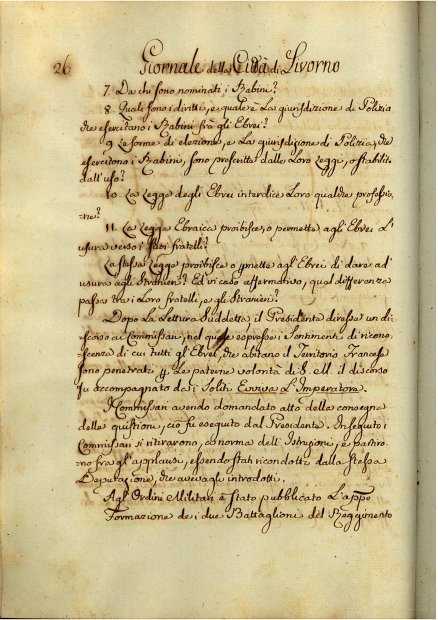 26 Giornale della Città di Livorno
7. Da chi sono nominati i Rabini?
8. Quali sono i diritti, e quale è La giurisdizione di Polizia
che esercitano i Rabini frà gli Ebrei?
9. Le forme di elezione, e La giurisdizione di Polizia, che
esercitono i Rabini, sono prescritte dalle Loro Leggi, o stabilite
dall'uso?
10. La Legge degli Ebrei interdice Loro qualche professio-
ne?
11. La Legge Ebraica proibisce, o permette agli Ebrei L'
usura verso i Suoi fratelli?
La stessa Legge proibisce o pmette agl'Ebrei di dare ad
usura agli Stranieri? Ed in caso affermativo, qual differenza
passa tra i Loro fratelli, e gli Stranieri?
Dopo La Lettura Suddetta, il Presidente diresse un di-
scorso ai Commissari, nel quale espresse i Sentimenti di ricono-
scenza di cui tutti gl'Ebrei, che abitano il Territorio Francese
sono penetrati p. Le paterne volontà di S. M. il discorso
fu accompagnato da i Soliti Evviva L'Imperatore.
I Commissari avendo domandato atto della consegna
delle questioni, ciò fu eseguito dal Presidente. In seguito i
Commissari si ritirarono, a norma dell'Istruzioni, e partiro-
no fra gl'applausi, essendo stati ricondotti dalla stessa
Deputazione, che avevagli introdotti.
Agl'Ordini Militari è stato pubblicato L'app.
Formazione de i due Battaglioni del Reggimento